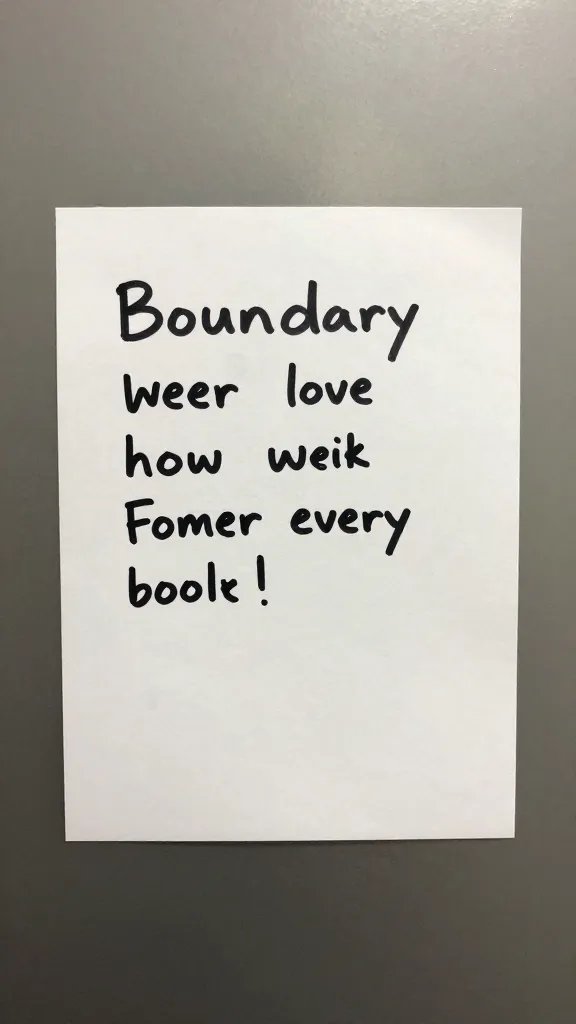 Boundary
weer love
how weik
Fomer every
book!